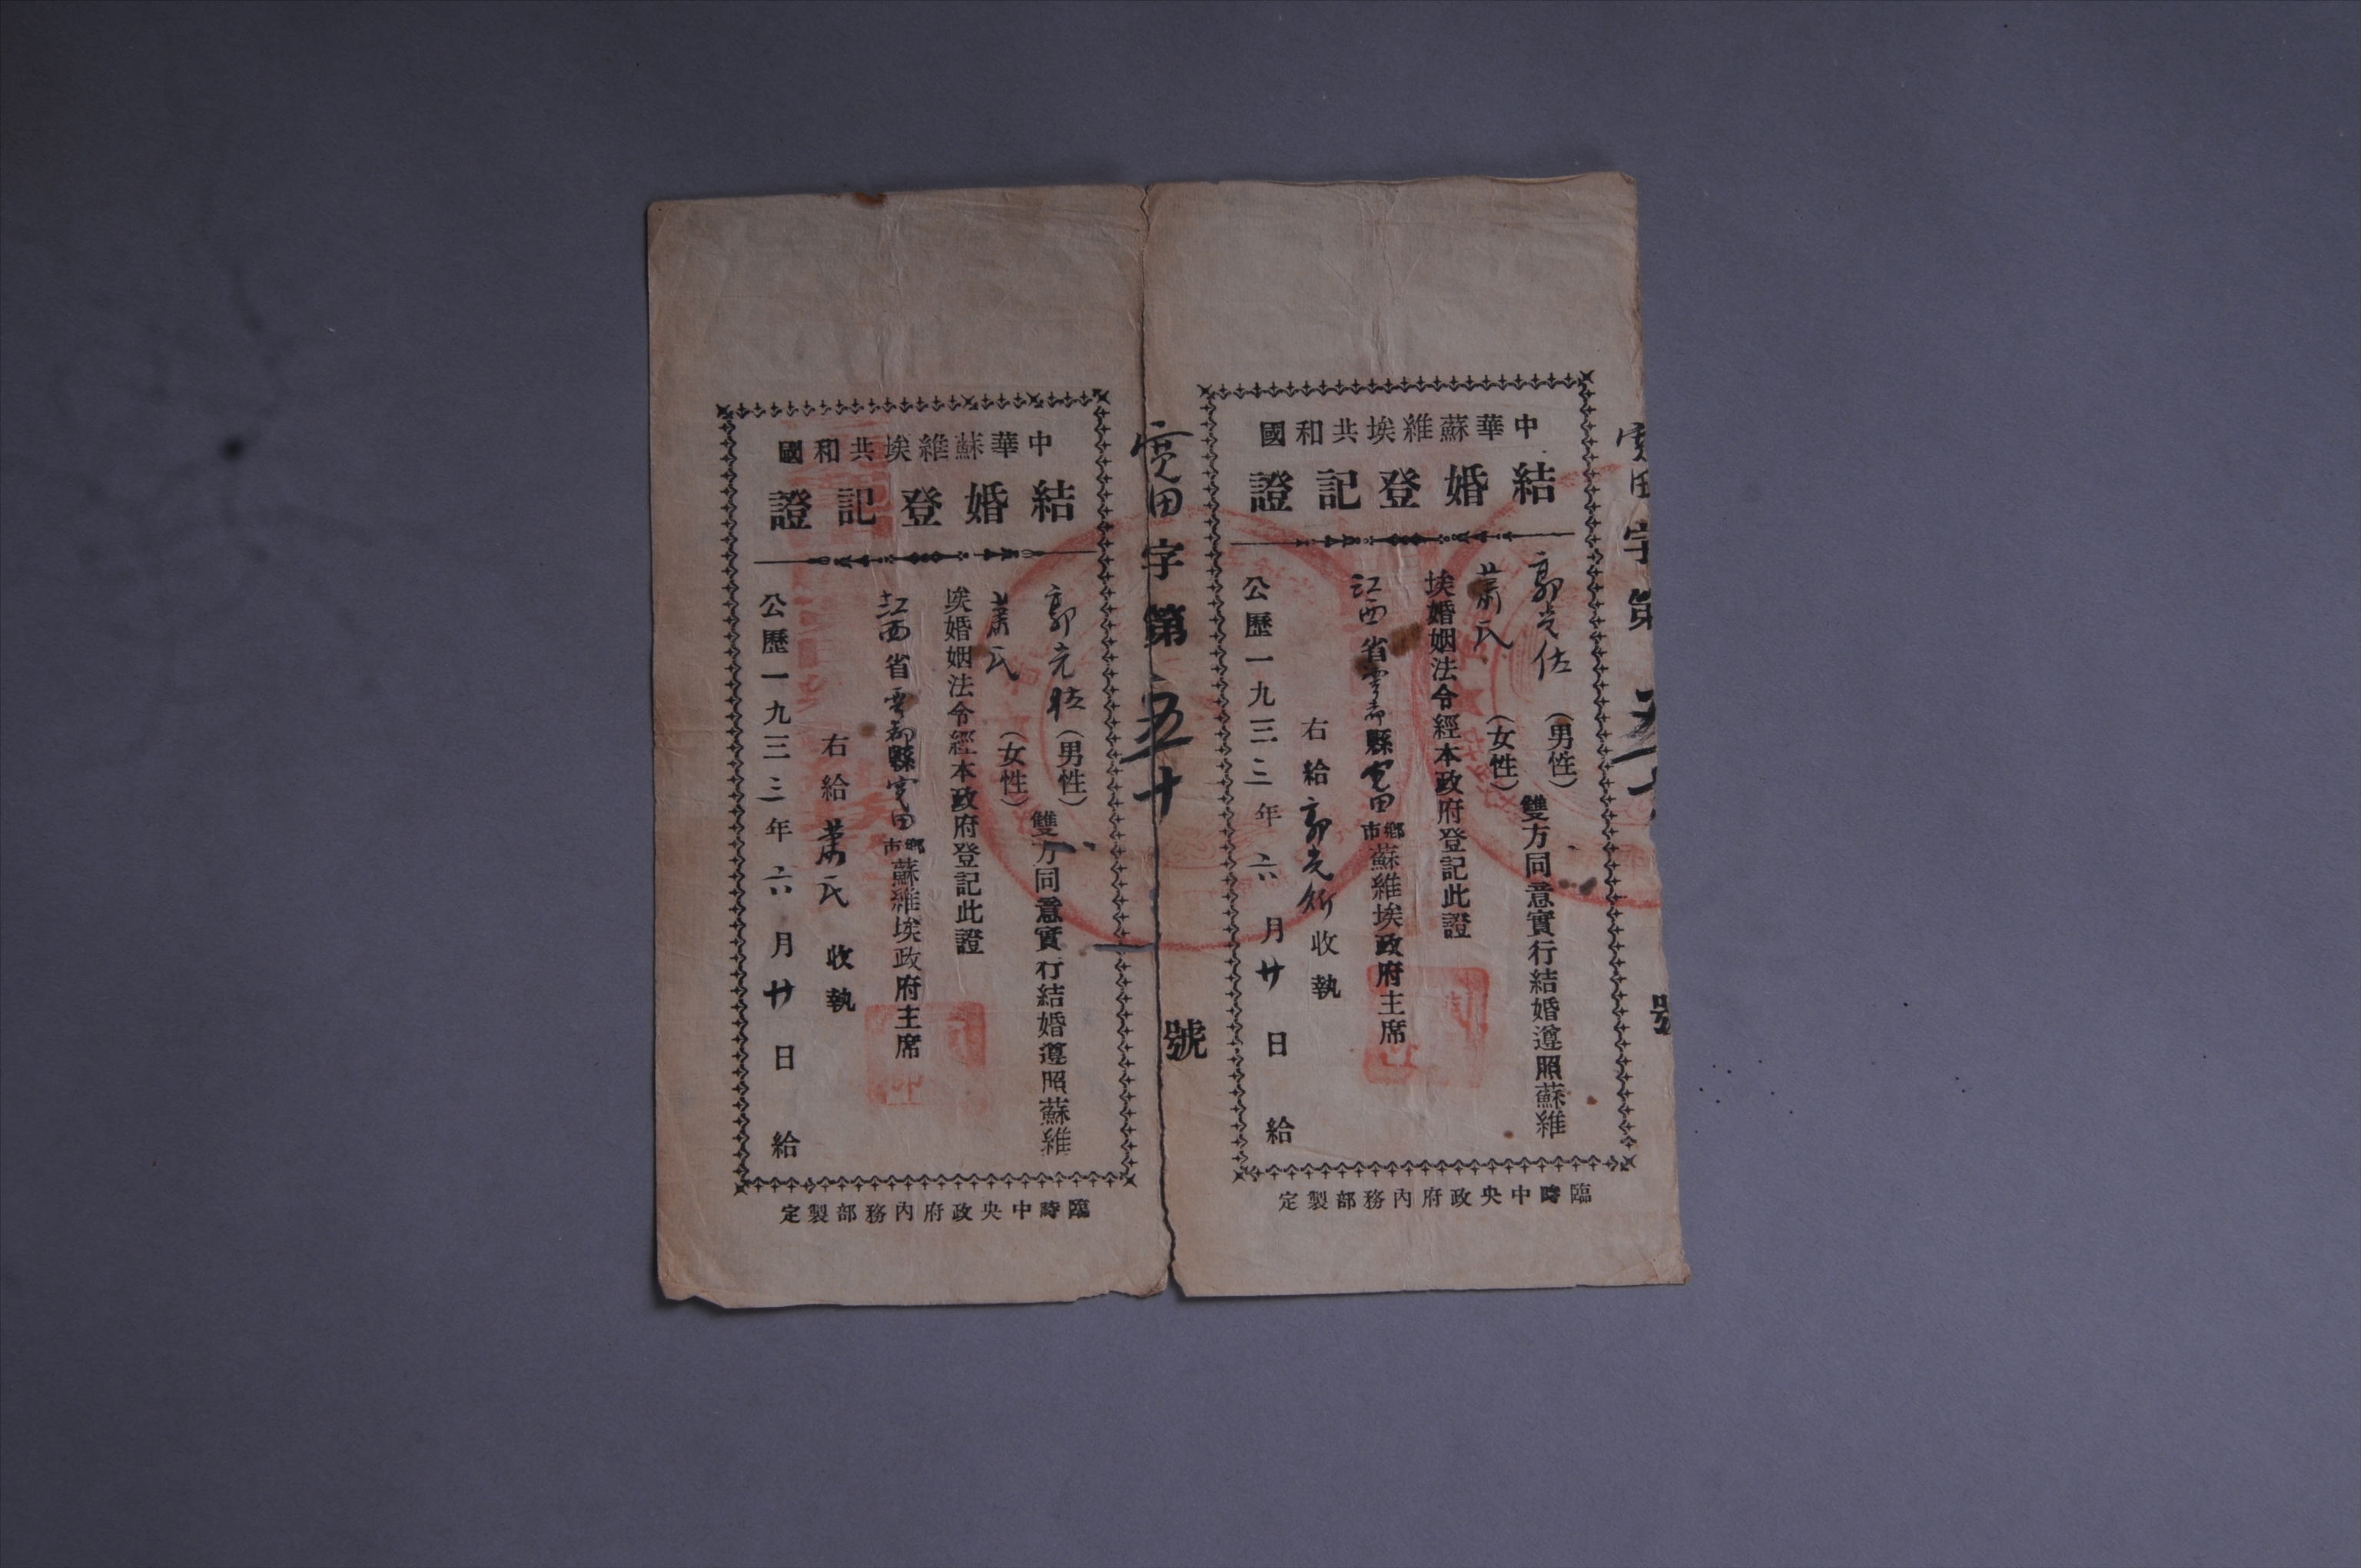 寬田字第五十號
中華蘇維埃共和國
結婚登記證
郭光佐（男性）
蕭氏（女性）
雙方同意實行結婚遵照蘇維
埃婚姻法令經本政府登記此證
江西省雩都縣寬田鄉市蘇維埃政府主席
右給郭光佐收執
公歷一九三三年六月廿日給
臨時中央政府內務部製定
寬田字第五十號
中華蘇維埃共和國
結婚登記證
郭光佐（男性）
蕭氏（女性）
雙方同意實行結婚遵照蘇維
埃婚姻法令經本政府登記此證
江西省雩都縣寬田鄉市蘇維埃政府主席
右給蕭氏收執
公歷一九三三年六月廿日給
臨時中央政府內務部製定